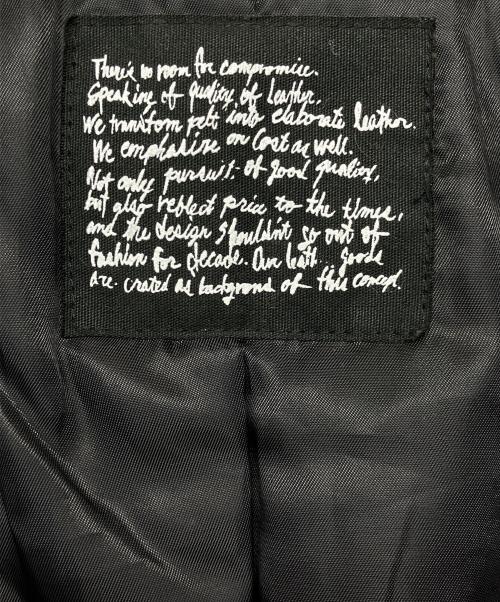 There's no room for compromise.
Speaking of quality of leather.
We transform pelt into elaborate leather.
We emphasize on Cost as well.
Not only pursuit of good quality,
but also reflect price to the times,
and the design shouldn't go out of
fashion for decade. Our goods
are created as background of this concept.